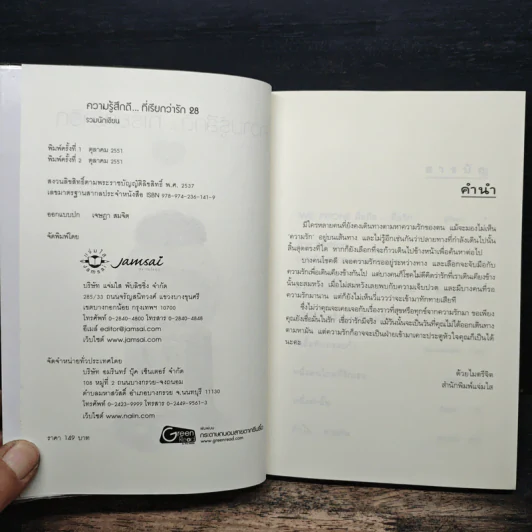 ความรู้สึกดี... ที่เรียกว่ารัก 28
รวมนักเขียน
พิมพ์ครั้งที่ 1 ตุลาคม 2551
พิมพ์ครั้งที่ 2 ตุลาคม 2551
สงวนลิขสิทธิ์ตามพระราชบัญญัติลิขสิทธิ์ พ.ศ. 2537
เลขมาตรฐานสากลประจำหนังสือ ISBN 978-974-236-141-9
ออกแบบปก เจษฎา สมจิต
จัดพิมพ์โดย
jamsai
บริษัท แจ่มใส พับลิชชิ่ง จำกัด
285/33 ถนนจรัญสนิทวงศ์ แขวงบางขุนศรี
เขตบางกอกน้อย กรุงเทพฯ 10700
โทรศัพท์ 0-2840-4800 โทรสาร 0-2840-4848
อีเมล์ editor@jamsai.com
เว็บไซต์ www.jamsai.com
จัดจำหน่ายทั่วประเทศโดย
บริษัท อมรินทร์ บุ๊ค เซ็นเตอร์ จำกัด
108 หมู่ที่ 2 ถนนบางกรวย-จงถนอม
ตำบลมหาสวัสดิ์ อำเภอบางกรวย จ.นนทบุรี 11130
โทรศัพท์ 0-2423-9999 โทรสาร 0-2449-9561-3
เว็บไซต์ www.naiin.com
ราคา 149 บาท
Green
กระดาษถนอมสายตากรีนรี้ด
www.greenread.com
คำนำ
มีใครหลายคนที่ยังคงเดินทางตามหาความรักของตน แม้จะมองไม่เห็น
'ความรัก' อยู่บนเส้นทาง และไม่รู้อีกเช่นกันว่าปลายทางที่กำลังเดินไปนั้น
สิ้นสุดตรงที่ใด หากก็ยังเลือกที่จะก้าวเดินไปข้างหน้าเพื่อค้นหาต่อไป
บางคนโชคดี เจอความรักรออยู่ระหว่างทาง และเลือกจะจับมือกับ
ความรักเพื่อเดินเคียงข้างกันไป แต่บางคนก็โชคไม่ดีคิดว่ารักที่เราเดินเคียงข้าง
นั้นจะสมหวัง เมื่อไม่สมหวังเลยพบกับความเจ็บปวด และมีบางคนที่รอ
ความรักมานาน แต่ก็ยังไม่เห็นวี่แววว่าจะเข้ามาทักทายเสียที
ซึ่งไม่ว่าคุณจะเคยเจอกับเรื่องราวที่สุขหรือทุกข์ช้ำจากความรักมา ขอเพียง
คุณยังเชื่อมั่นในรัก เชื่อว่ารักมีจริง แม้วันนั้นจะเป็นวันที่คุณไม่ได้ออกเดินทาง
ตามหามัน แต่ความรักก็อาจจะเป็นฝ่ายเข้ามาเคาะประตูหัวใจคุณก็เป็นได้
นะคะ
ด้วยไมตรีจิต
สำนักพิมพ์แจ่มใส